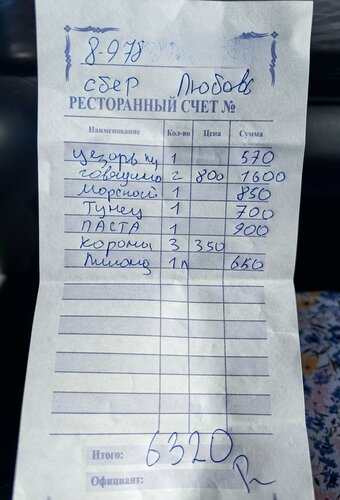 8-978
сбер Любовь
РЕСТОРАННЫЙ СЧЕТ №
Наименование Кол-во Цена Сумма
Цезарь кур 1 570
говядина 2 800 1600
Морской 1 850
Тунец 1 700
ПАСТА 1 900
Короны 3 350
Лимонад 1л 650
Итого: 6320
Официант: